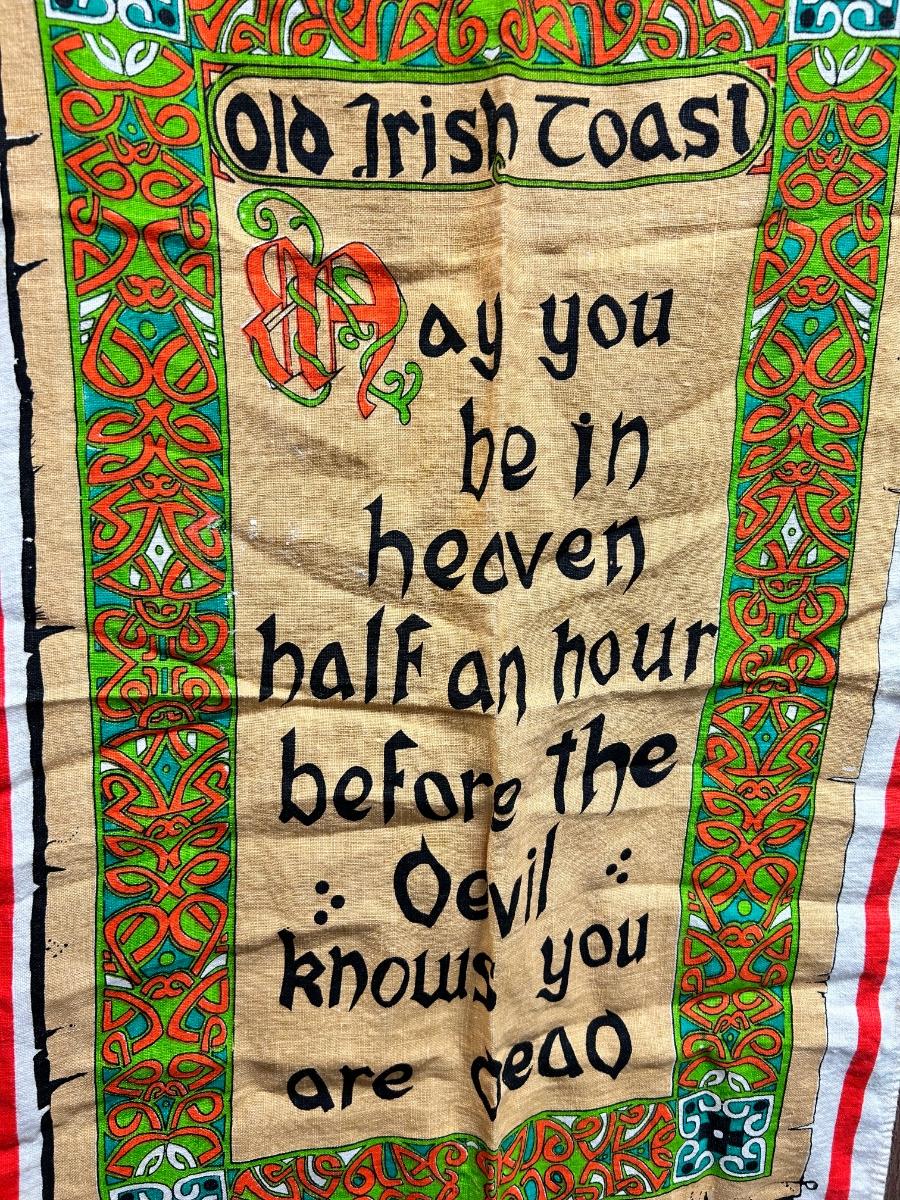 Old Irish Toast
May you
be in
heaven
half an hour
before the
Devil
knows you
are dead